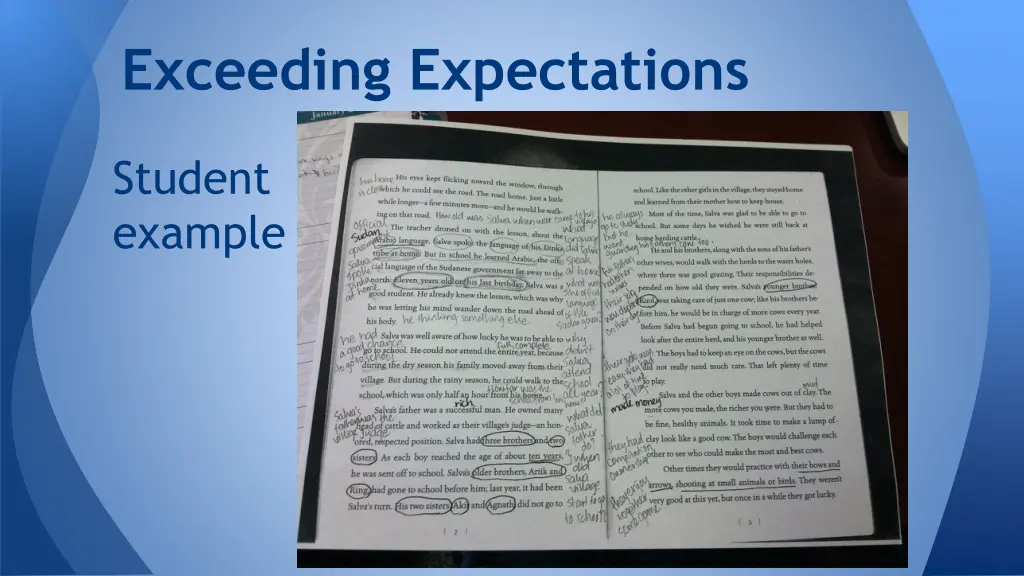 Exceeding Expectations
Student
example
January
His eyes kept flicking toward the window, through
which he could see the road. The road home. Just a little
while longer—a few minutes more—and he would be walk-
ing on that road. How old was Salva when war came to his village
The teacher droned on with the lesson, about the
Arabic language. Salva spoke the language of his Dinka
tribe at home. But in school he learned Arabic, the offi-
cial language of the Sudanese government far away to the
north. Eleven years old on his last birthday, Salva was a
good student. He already knew the lesson, which was why
he was letting his mind wander down the road ahead of
his body. he thinking something else
Salva was well aware of how lucky he was to be able to
go to school. He could not attend the entire year, because
full, complete
during the dry season his family moved away from their
village. But during the rainy season, he could walk to the
school, which was only half an hour from his home.
How far was the
school from
rich
Salva's father was a successful man. He owned many
head of cattle and worked as their village's judge—an hon-
ored, respected position. Salva had three brothers and two
sisters. As each boy reached the age of about ten years,
he was sent off to school. Salva's older brothers, Ariik and
Ring, had gone to school before him; last year, it had been
Salva's turn. His two sisters, Akit and Agnath, did not go to
| 2 |
official
Sudan
government
Salva
spoke
Dinka
at home
he had
a good chance
to go to school
Salva's
father was the
village judge
what
language
did they
speak
at home
what was
the official
language
of the
Sudan
why
didn't
Salva
attend
school
all year?
what did
Salva
father
do?
when
did
Salva
village
start to go
to school?
school. Like the other girls in the village, they stayed home
and learned from their mother how to keep house.
Most of the time, Salva was glad to be able to go to
school. But some days he wished he were still back at
home herding cattle.
He and his brothers, along with the sons of his father's
other wives, would walk with the herds to the water holes,
where there was good grazing. Their responsibilities de-
pended on how old they were. Salva's younger brother,
Kuol, was taking care of just one cow; like his brothers be-
fore him, he would be in charge of more cows every year.
Before Salva had begun going to school, he had helped
look after the entire herd, and his younger brother as well.
The boys had to keep an eye on the cows, but the cows
did not really need much care. That left plenty of time
to play.
mud
Salva and the other boys made cows out of clay. The
more cows you made, the richer you were. But they had to
be fine, healthy animals. It took time to make a lump of
clay look like a good cow. The boys would challenge each
other to see who could make the most and best cows.
Other times they would practice with their bows and
arrows, shooting at small animals or birds. They weren't
very good at this yet, but once in a while they got lucky.
| 3 |
made money
they had
competition